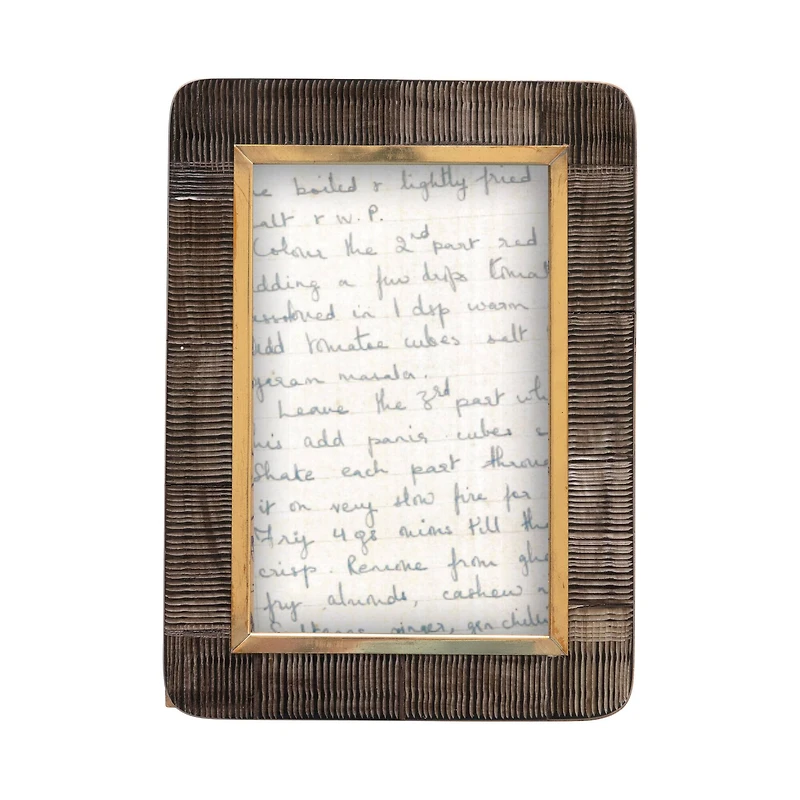 e boiled & lightly fried
alt & W.P.
Colour the 2nd part red
dding a few drps tomat
in 1 dsp warm
add tomatoe cubes salt
garam masala.
Leave the 3rd part wh
his add panir cubes
Shake each part throug
it on very slow fire for
Fry 4 gs till th
crisp. Remove from ghe
fry almonds, cashew n
ginger, gen chill